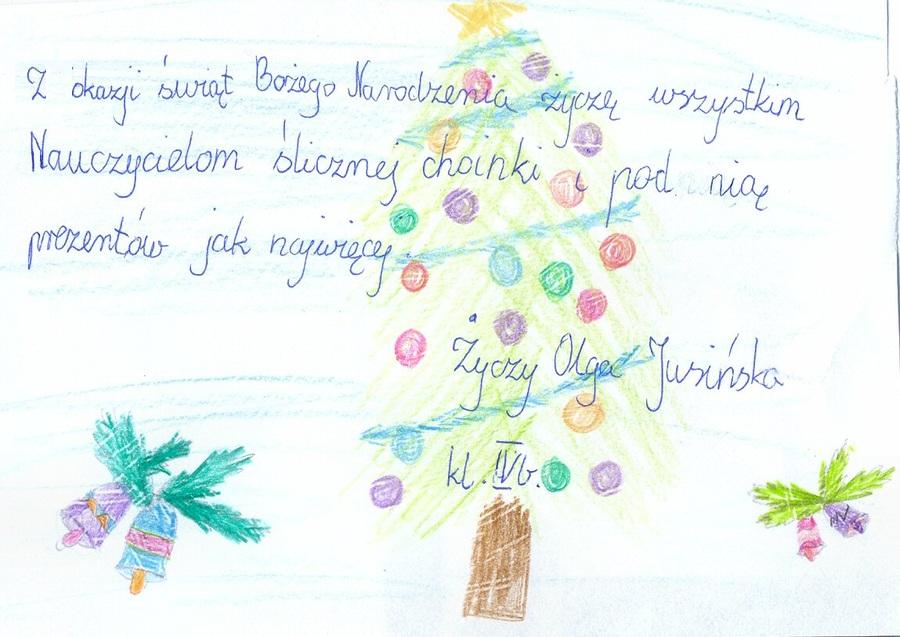 Z okazji świąt Bożego Narodzenia życzę wszystkim
Nauczycielom ślicznej choinki i pod nią
prezentów jak najwięcej.
Życzy Olga Jusińska
kl. IVb.